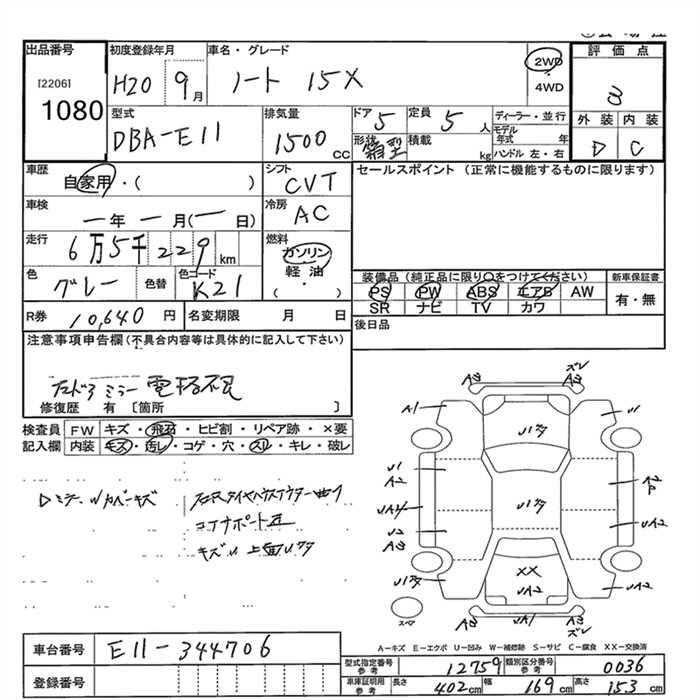 出品番号 初度登録年月 車名・グレード 評価点
[2206] H20 9月 ノート 15X 2WD 3
1080 ・4WD
型式 排気量 ドア 定員 ディーラー・並行 外装 内装
DBA-E11 1500cc 5 5人 モデル年式 年 D C
形状 箱型 積載 kg ハンドル 左・右
車歴 自家用・( ) シフト CVT セールスポイント (正常に機能するものに限ります)
車検 一年一月(一日) 冷房 AC
走行 6万5千229km 燃料 ガソリン・軽油・( )
色 グレー 色替 色コード K21
装備品(純正品に限り○をつけてください) 新車保証書
PS PW ABS エアB AW 有・無
SR ナビ TV カワ
R券 10,640円 名変期限 月 日 後日品
注意事項申告欄(不具合内容等は具体的に記入して下さい)
左ドアミラー電格不良
修復歴 有 [箇所 ]
検査員 FW キズ・飛石・ヒビ割・リペア跡・×要
記入欄 内装 キズ・汚レ・コゲ・穴・スレ・キレ・破レ
コアサポート
キズU 上面Uワタ
ズレ
A3 A3
A1 U1
Uワタ
U1 A2
A2 P
Uワタ
UA2
U2
A3
XX
UA2
Uワタ UA2
スペア
UA1 A3
ズレ
A-キズ E-エクボ U-凹み W-補修跡 S-サビ C-腐食 XX-交換済
車台番号 E11-344706
型式指定番号 参考 12759 類別区分番号 参考 0036
登録番号 車庫証明用 参考 長さ 402cm 幅 169cm 高さ 153cm